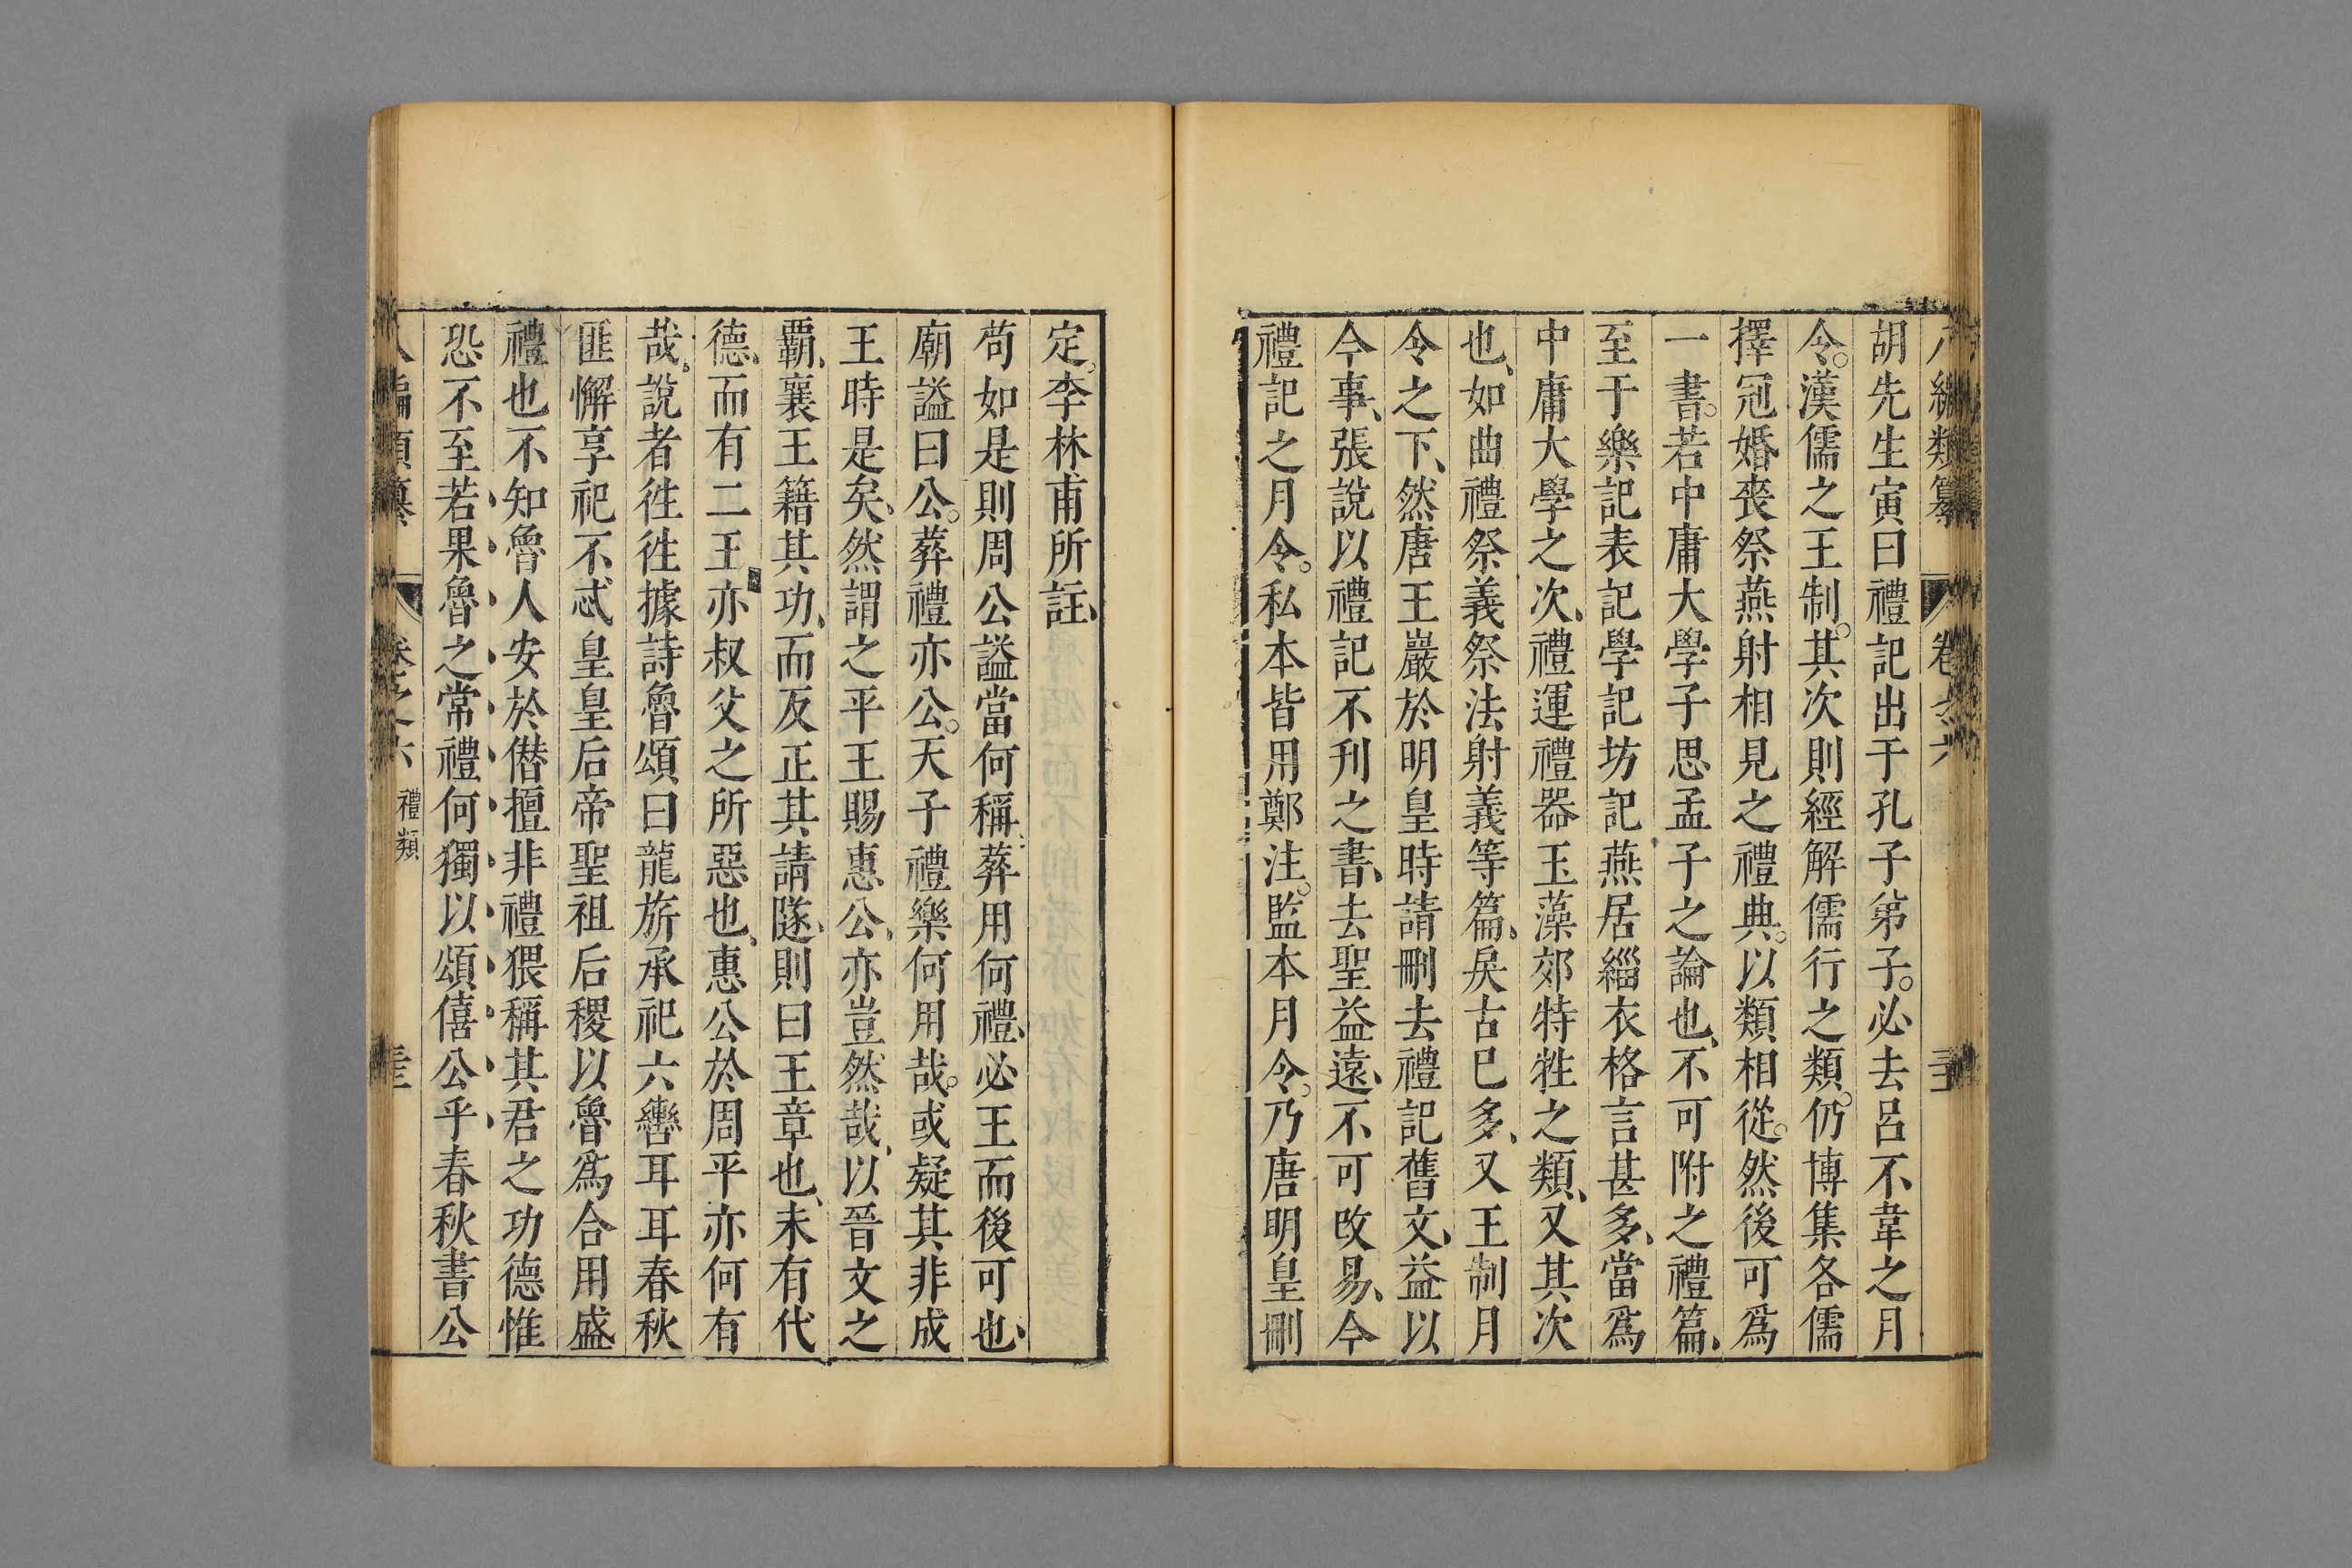 八編類纂 卷之六
胡先生寅曰禮記出于孔子弟子。必去呂不韋之月
令。漢儒之王制。其次則經解儒行之類。仍博集各儒
擇冠婚喪祭燕射相見之禮典。以類相從。然後可爲
一書。若中庸大學子思孟子之論也、不可附之禮篇、
至于樂記表記學記坊記燕居緇衣格言甚多、當爲
中庸大學之次、禮運禮器玉藻郊特牲之類、又其次
也、如曲禮祭義祭法射義等篇、戾古已多、又王制月
令之下、然唐王嚴於明皇時請刪去禮記舊文、益以
今事、張說以禮記不刋之書、去聖益遠、不可改易、今
禮記之月令。私本皆用鄭注。監本月令。乃唐明皇刪
定。李林甫所註、
苟如是則周公謚當何稱、葬用何禮、必王而後可也、
廟謚曰公。葬禮亦公。天子禮樂何用哉。或疑其非成
王時是矣、然謂之平王賜惠公、亦豈然哉、以晉文之
覇、襄王籍其功、而反正其請隧、則曰王章也、未有代
德、而有二王亦叔父之所惡也、惠公於周平亦何有
哉。說者徃徃據詩魯頌曰龍旂承祀六轡耳耳春秋
匪懈享祀不忒皇皇后帝聖祖后稷以魯爲合用盛
禮也不知魯人安於僭擅非禮猥稱其君之功德惟
恐不至若果魯之常禮何獨以頌僖公乎春秋書公
八編類纂 卷之六 禮類